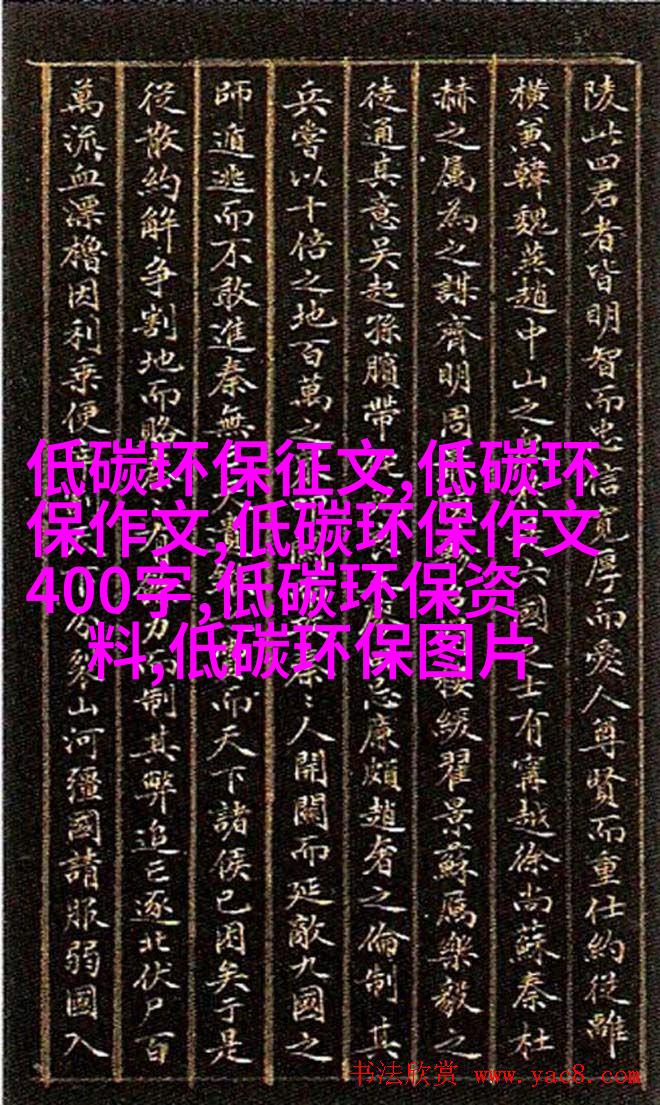 陵此四君者皆明智而忠信寬厚而愛人尊賢而重仕約從離
橫兼韓魏燕趙中山之六國之士有甯越徐尚蘇秦杜
赫之屬為之謀齊明周樓緩翟景蘇厲樂毅之
徒通其意吳起孫臏帶忌廉頗趙奢之倫制其
兵嘗以十倍之地百萬之秦〻人開關而延敵九國之
師遁逃而不敢進秦無而天下諸侯已困矣于是
從散約解爭割地而賂力而制其弊追亡逐北伏尸百
萬流血漂櫓因利乘便裂山河彊國請服弱國入
低碳环保征文,低碳环
保作文,低碳环保作文
400字,低碳环保资
料,低碳环保图片
书法欣赏 www.yac8.com